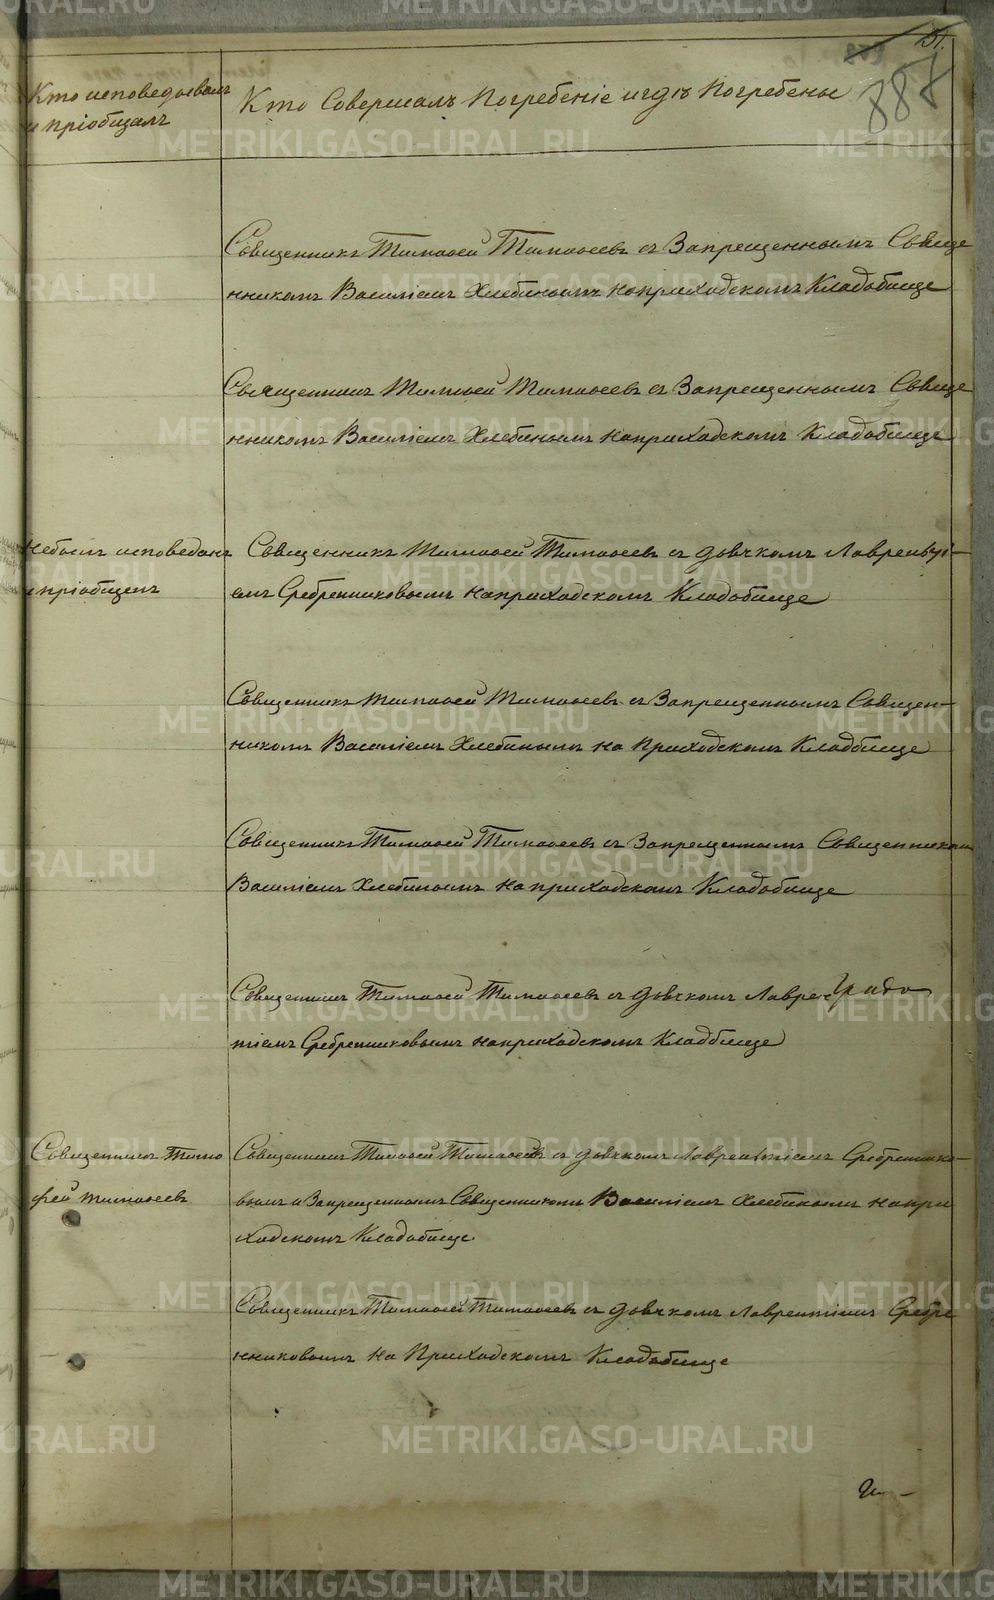 51.
887
Кто исповедывалъ
и пріобщалъ
Кто Совершалъ Погребеніе и гдѣ Погребены
Священникъ Тимофей Тимофеевъ съ Запрещеннымъ Свяще
нникомъ Василіемъ Хлебинымъ на приходскомъ Кладбище
Священникъ Тимофей Тимофеевъ съ Запрещеннымъ Свяще
нникомъ Василіемъ Хлебинымъ на приходскомъ Кладбище
Небылъ исповеданъ
и пріобщенъ
Священникъ Тимофей Тимофеевъ съ дьячкомъ Лаврентьі-
емъ Сребренниковымъ на приходскомъ Кладбище
Священникъ Тимофей Тимофеевъ съ Запрещеннымъ Священ-
никомъ Василіемъ Хлебинымъ на Приходскомъ Кладбище
Священникъ Тимофей Тимофеевъ съ Запрещеннымъ Священникомъ
Василіемъ Хлебинымъ на приходскомъ Кладбище
Священникъ Тимофей Тимофеевъ съ дьячкомъ Лаврен
тіемъ Сребренниковымъ на приходскомъ Кладбище
Священникъ Тимо
фей Тимофеевъ
Священникъ Тимофей Тимофеевъ съ дьячкомъ Лаврентіемъ Сребреннико-
вымъ и Запрещеннымъ Священникомъ Василіемъ Хлебинымъ на при
ходскомъ Кладбище
Священникъ Тимофей Тимофеевъ съ дьячкомъ Лаврентіемъ Сребре
нниковымъ на Приходскомъ Кладбище
METRIKI.GASO-URAL.RU